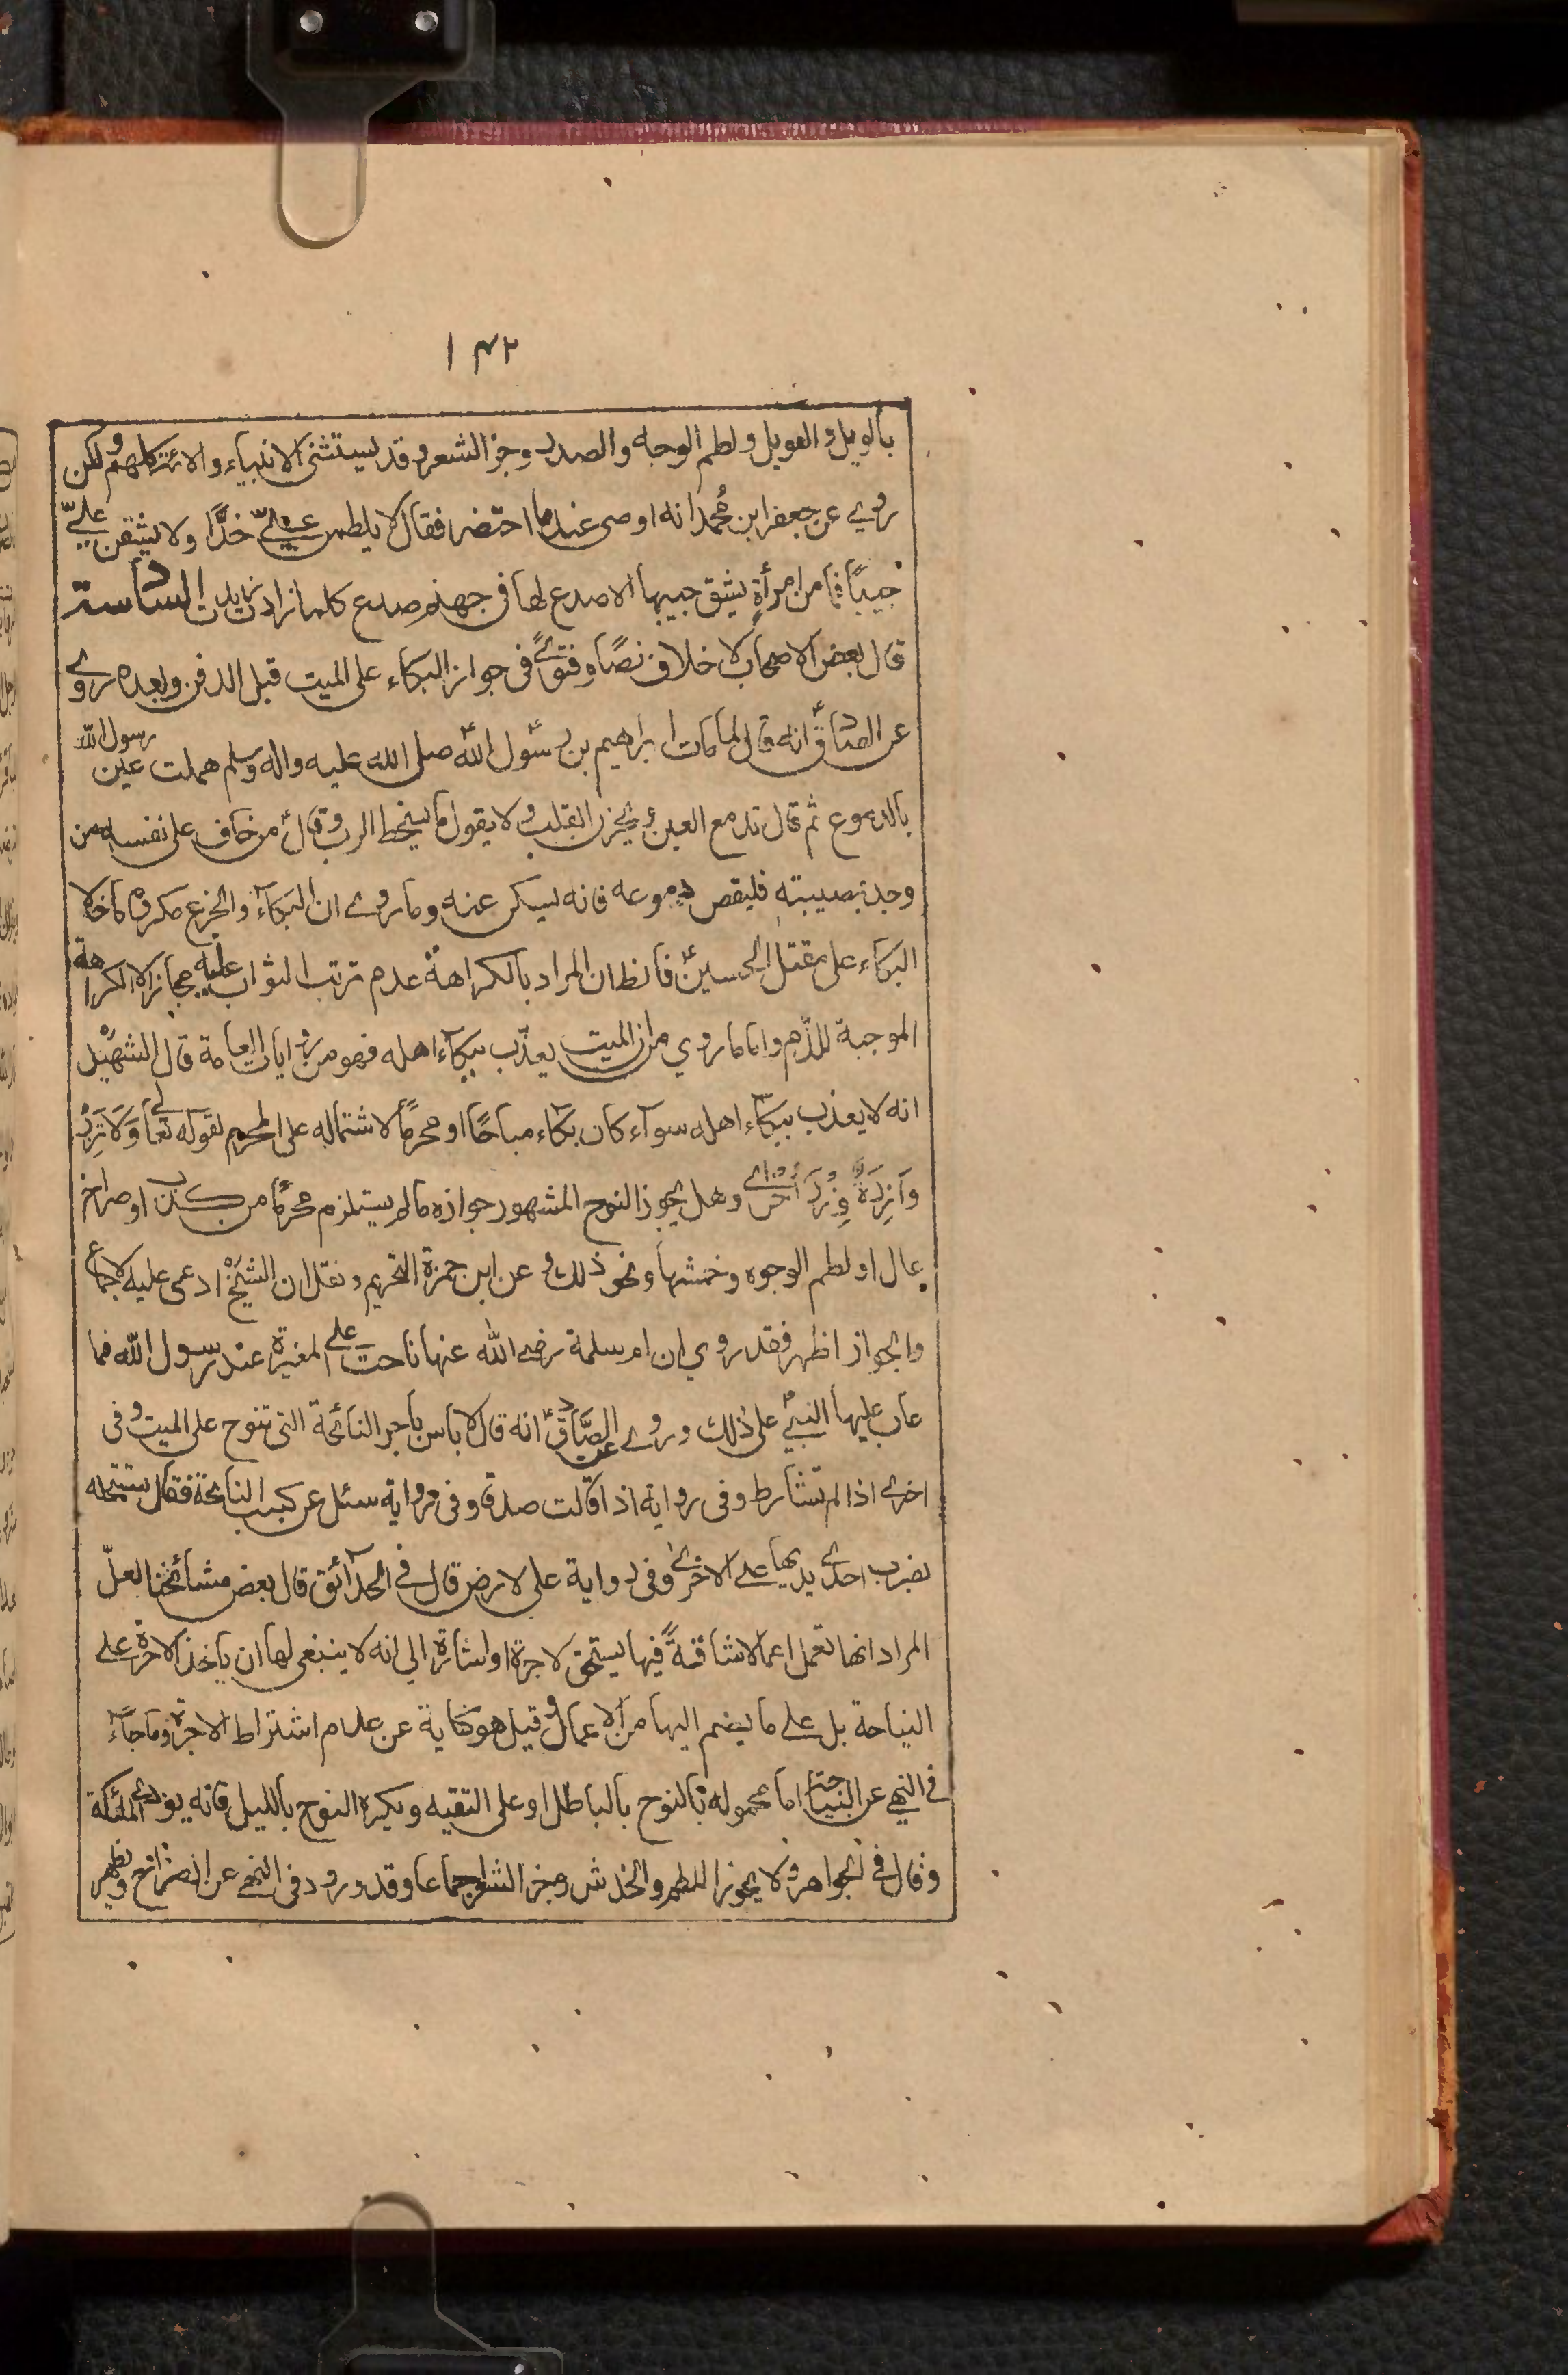 ١٤٢
بالويل والعويل ولطم الوجه والصدر وجز الشعر وقد يستثنى الانبياء والائمة كلهم ولكن
روي عن جعفر ابن محمد انه اوصى عندما احتضر فقال لا يلطمن عليّ خدًّا ولا يشقن عليّ
جيبًا فما من امرأةٍ يشق جيبها الا صدع لها في جهنم صدع كلما زادت زيدت السادسة
قال بعض الاصحاب لا خلاف نصًا وفتوىً في جواز البكاء على الميت قبل الدفن وبعده روي
عن الصادق انه قال لما مات ابراهيم بن رسول الله صلى الله عليه واله وسلم هملت عين رسول الله
بالدموع ثم قال تدمع العين ويحزن القلب ولا يقول ما يسخط الرب وقال من خاف على نفسه من
وجد بمصيبته فليفض دموعه فانه يسكن عنه وما روي ان البكاء والجزع مكروه ما خلا
البكاء على مقتل الحسين فالظ ان المراد بالكراهة عدم ترتب الثواب عليه مجازا لا الكراهة
الموجبة للذم واما ما روي من ان الميت يعذّب ببكاء اهله فهو من روايات العامة قال الشهيد
انه لا يعذب ببكاء اهله سواء كان بكاء مباحًا او محرمًا لاشتماله على المحرم لقوله تعالى وَلَا تَزِرُ
وَازِرَةٌ وِزْرَ أُخْرَى وهل يجوز النوح المشهور جوازه ما لم يستلزم محرمًا من كذب او صراخ
عال او لطم الوجوه وخمشها ونحو ذلك وعن ابن حمزة التحريم ونقل ان الشيخ ادعى عليه الاجماع
والجواز اظهر فقد روي ان ام سلمة رضي الله عنها ناحت على المغيرة عند رسول الله فما
عاب عليها النبي على ذلك وروي عن الصادق انه قال لا باس باجر النائحة التي تنوح على الميت وفي
اخرى اذا لم تشارط وفي رواية اذا قالت صدقا وفي رواية سئل عن كسب النايحة فقال تستحله
بضرب احدى يديها على الاخرى وفي رواية على لارض قال في الحدائق قال بعض مشائخنا لعلّ
المراد انها تعمل اعمالا شاقةً فيها يستحق لاجرة او اشارة الى انه لا ينبغي لها ان ياخذ الاجرة على
النياحة بل على ما يضم اليها من الاعمال وقيل هو كناية عن عدم اشتراط الاجرة وما جاء
في النهي عن النياحة اما محموله بالنوح بالباطل او على التقيه ويكره النوح بالليل فانه يوذي الملئكة
وقال في الجواهر ولا يجوز اللطم والخدش وجز الشعر اجماعا وقد ورود في النهي عن الصراخ وظهر